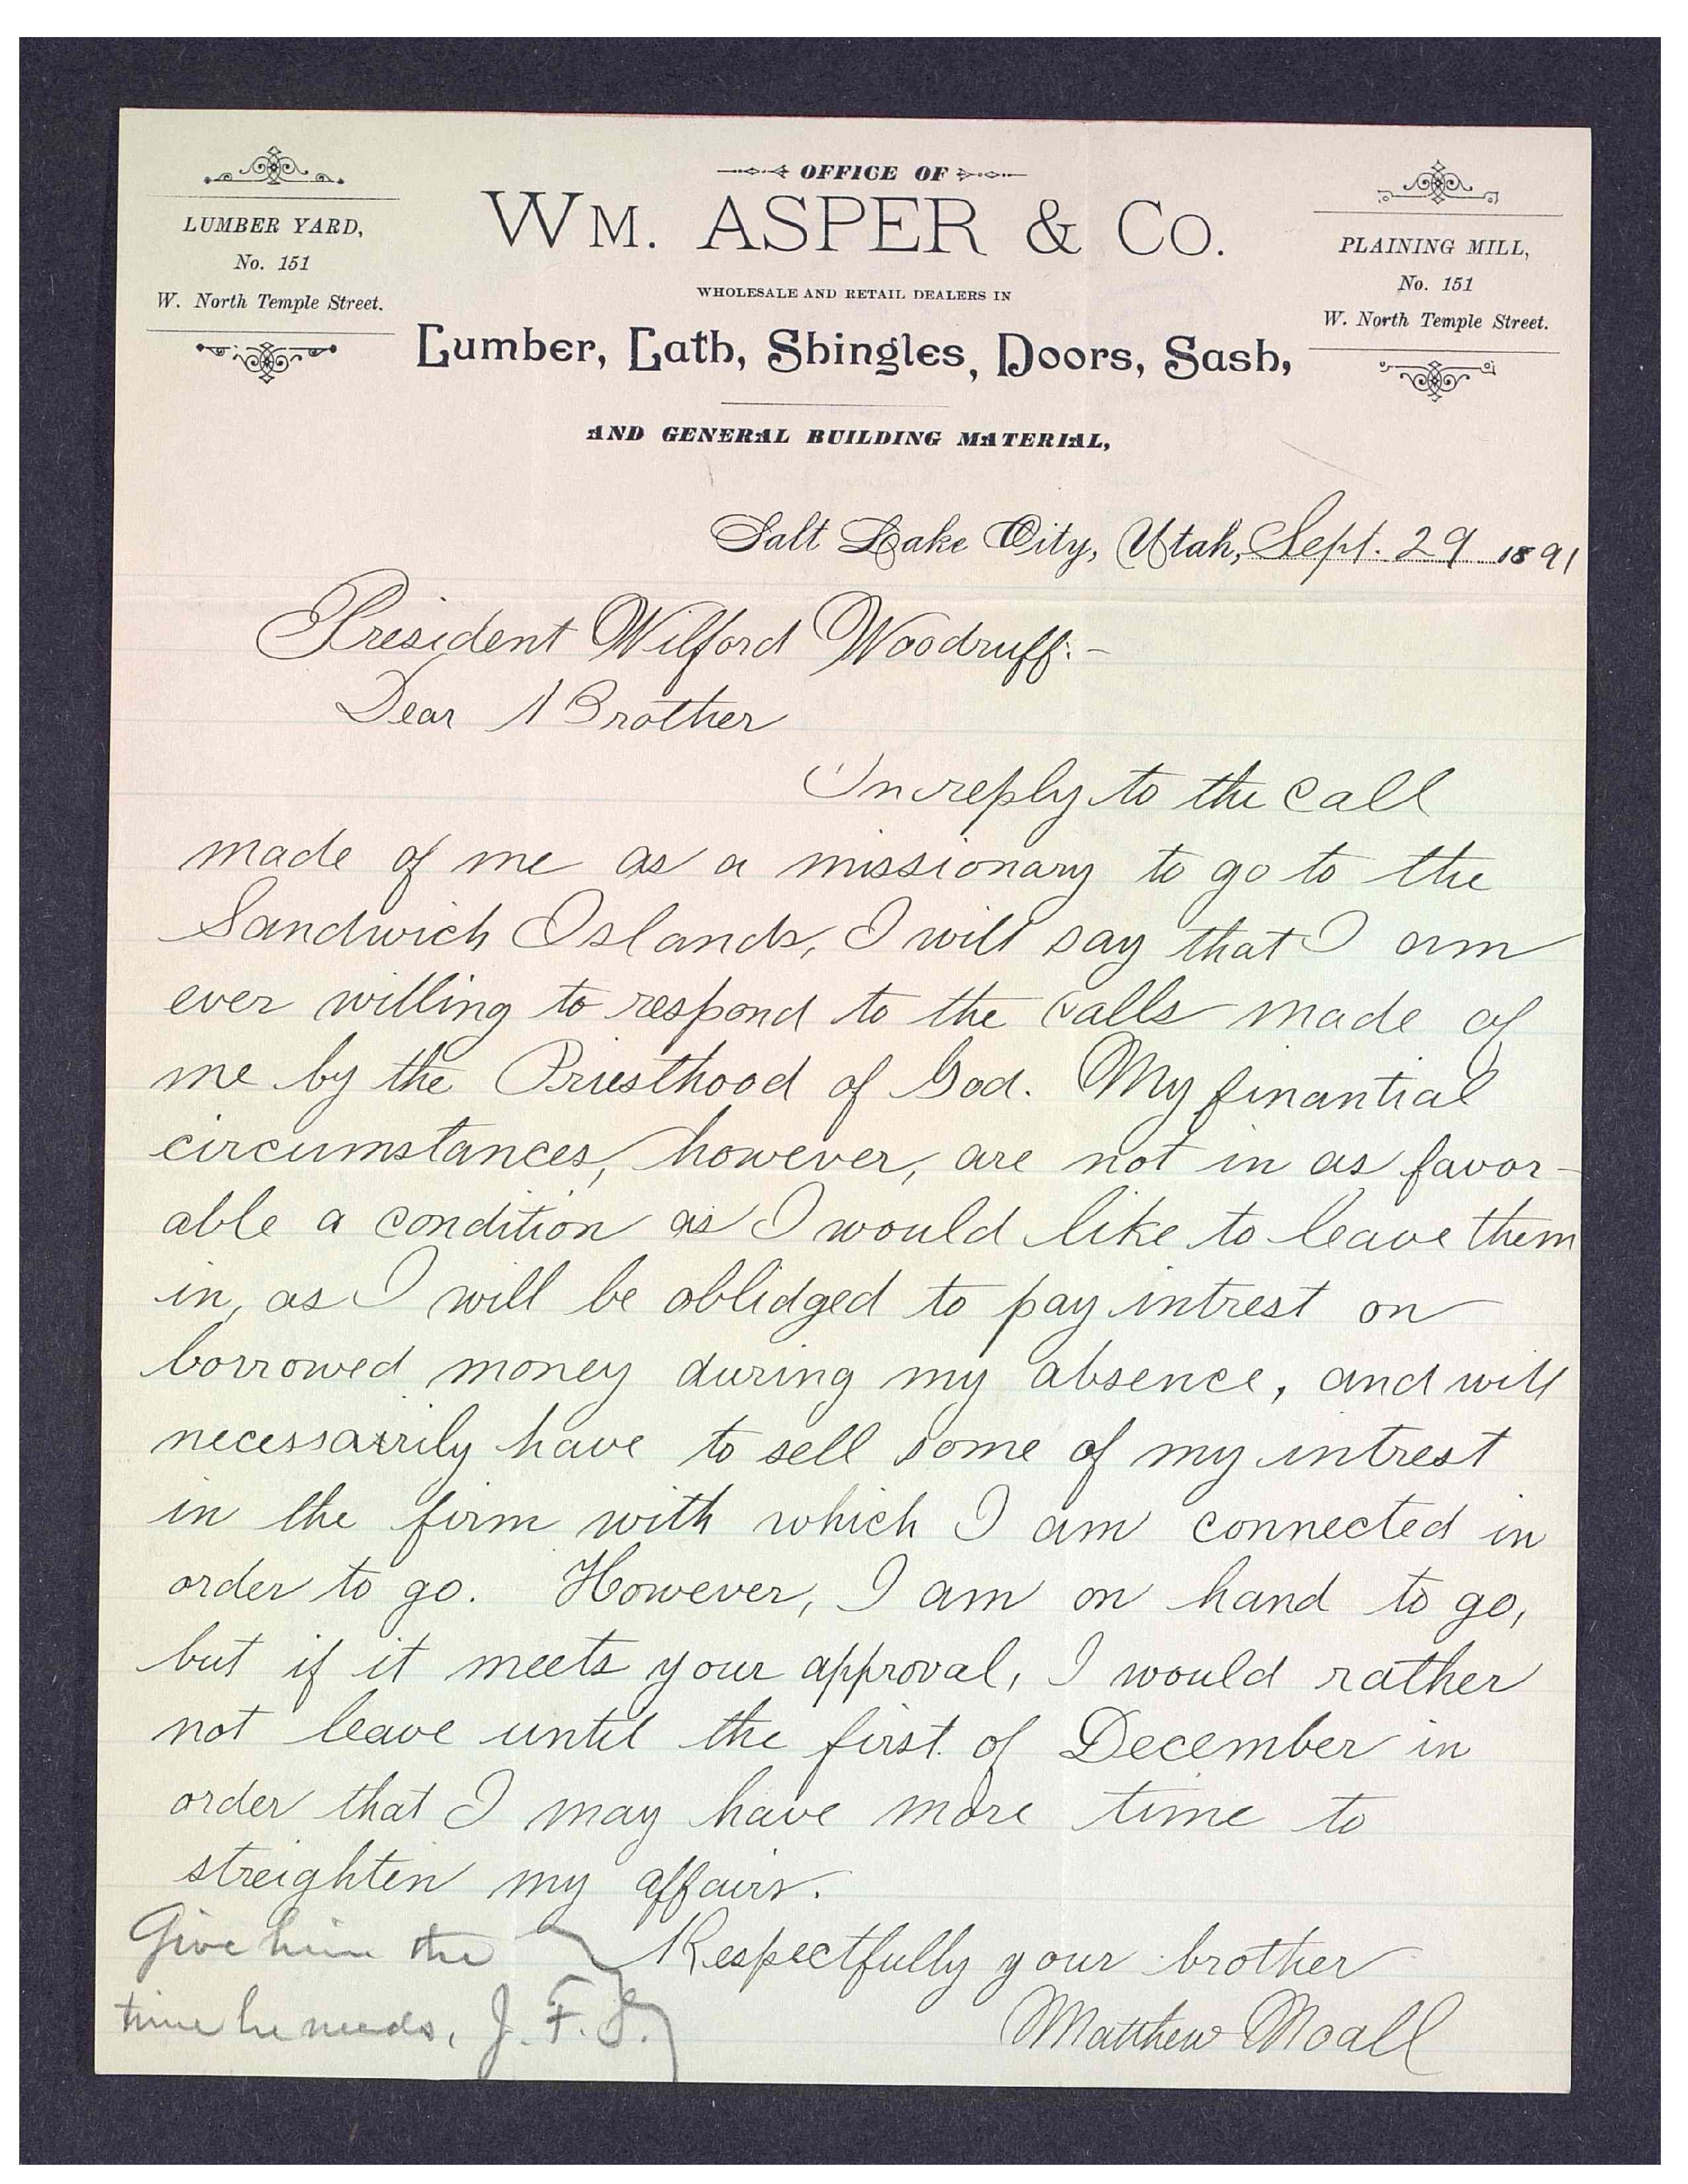 OFFICE OF
WM. ASPER & CO.
WHOLESALE AND RETAIL DEALERS IN
Lumber, Lath, Shingles, Doors, Sash,
AND GENERAL BUILDING MATERIAL,
LUMBER YARD,
No. 151
W. North Temple Street.
PLAINING MILL,
No. 151
W. North Temple Street.
Salt Lake City, Utah, Sept. 29 1891
President Wilford Woodruff:-
Dear Brother
In reply to the call
made of me as a missionary to go to the
Sandwich Islands, I will say that I am
ever willing to respond to the calls made of
me by the Priesthood of God. My finantial
circumstances, however, are not in as favor-
able a condition as I would like to leave them
in, as I will be oblidged to pay intrest on
borrowed money during my absence, and will
necessarrily have to sell some of my intrest
in the firm with which I am connected in
order to go. However, I am on hand to go,
but if it meets your approval, I would rather
not leave until the first of December in
order that I may have more time to
streighten my affairs.
Respectfully your brother
Matthew Noall
Give him the
time he needs, J. F. S.